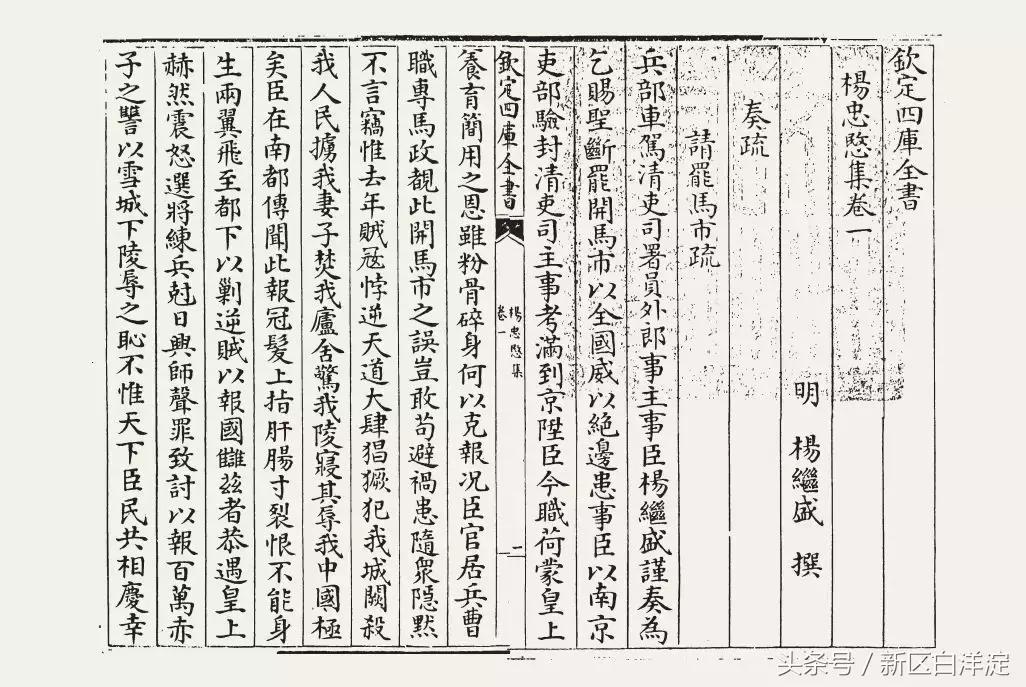 欽定四庫全書
楊忠愍集卷一
明　楊繼盛　撰
奏疏
請罷馬市疏
兵部車駕清吏司署員外郎事主事臣楊繼盛謹奏為
乞賜聖斷罷開馬市以全國威以絕邊患事臣以南京
吏部驗封清吏司主事考滿到京陞臣今職荷蒙皇上
欽定四庫全書
楊忠愍集
卷一
一
養育簡用之恩雖粉骨碎身何以克報况臣官居兵曹
職專馬政覩此開馬市之誤豈敢苟避禍患隨衆隱默
不言竊惟去年賊冦悖逆天道大肆猖獗犯我城闕殺
我人民擄我妻子焚我廬舍驚我陵寢其辱我中國極
矣臣在南都傳聞此報冠髮上指肝腸寸裂恨不能身
生兩翼飛至都下以剿逆賊以報國讎兹者恭遇皇上
赫然震怒選將練兵尅日興師聲罪致討以報百萬赤
子之讐以雪城下陵辱之恥不惟天下臣民共相慶幸
头条号 / 新区白洋淀